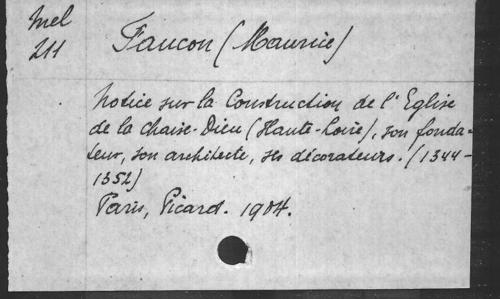 Mel
211
Faucon (Maurice)
Notice sur la Construction de l'Eglise
de la Chaise-Dieu (Haute-Loire), son fonda-
teur, son architecte, ses décorateurs. (1344-
1352)
Paris, Picard. 1904.